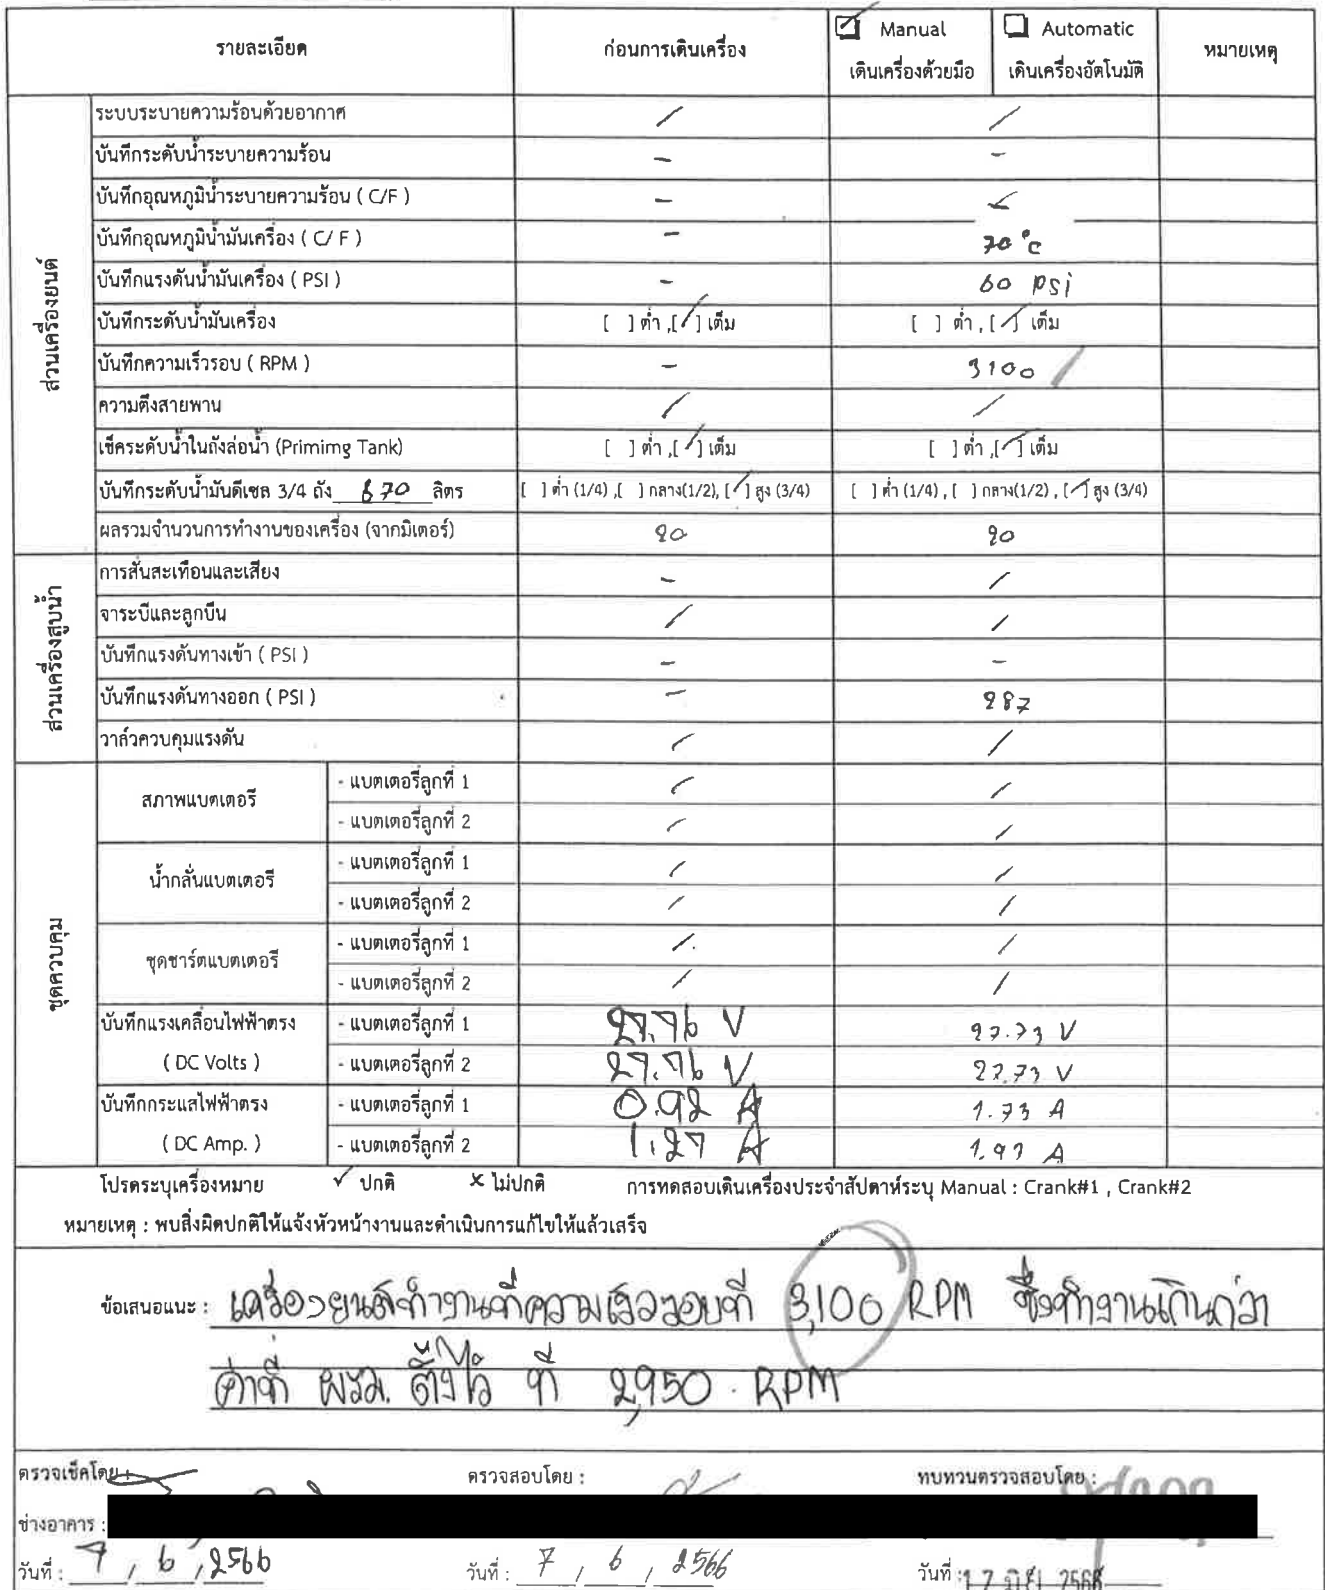 รายละเอียด ก่อนการเดินเครื่อง ☑ Manual เดินเครื่องด้วยมือ ☐ Automatic เดินเครื่องอัตโนมัติ หมายเหตุ
ส่วนเครื่องยนต์
ระบบระบายความร้อนด้วยอากาศ / /
บันทึกระดับน้ำระบายความร้อน - -
บันทึกอุณหภูมิน้ำระบายความร้อน ( C/F ) -
บันทึกอุณหภูมิน้ำมันเครื่อง ( C/ F ) - 70 °c
บันทึกแรงดันน้ำมันเครื่อง ( PSI ) - 60 psi
บันทึกระดับน้ำมันเครื่อง [ ] ต่ำ ,[ / ] เต็ม [ ] ต่ำ , [ / ] เต็ม
บันทึกความเร็วรอบ ( RPM ) - 3100 /
ความตึงสายพาน / /
เช็คระดับน้ำในถังล่อน้ำ (Primimg Tank) [ ] ต่ำ ,[ / ] เต็ม [ ] ต่ำ ,[ / ] เต็ม
บันทึกระดับน้ำมันดีเซล 3/4 ถัง 870 ลิตร [ ] ต่ำ (1/4) ,[ ] กลาง(1/2), [ / ] สูง (3/4) [ ] ต่ำ (1/4) , [ ] กลาง(1/2) , [ / ] สูง (3/4)
ผลรวมจำนวนการทำงานของเครื่อง (จากมิเตอร์) 20 20
ส่วนเครื่องสูบน้ำ
การสั่นสะเทือนและเสียง - /
จาระบีและลูกปืน / /
บันทึกแรงดันทางเข้า ( PSI ) - -
บันทึกแรงดันทางออก ( PSI ) - 287
วาล์วควบคุมแรงดัน / /
ชุดควบคุม
สภาพแบตเตอรี่ - แบตเตอรี่ลูกที่ 1 / /
- แบตเตอรี่ลูกที่ 2 / /
น้ำกลั่นแบตเตอรี่ - แบตเตอรี่ลูกที่ 1 / /
- แบตเตอรี่ลูกที่ 2 / /
ชุดชาร์ตแบตเตอรี่ - แบตเตอรี่ลูกที่ 1 / /
- แบตเตอรี่ลูกที่ 2 / /
บันทึกแรงเคลื่อนไฟฟ้าตรง - แบตเตอรี่ลูกที่ 1 27.76 V 27.73 V
( DC Volts ) - แบตเตอรี่ลูกที่ 2 27.76 V 27.73 V
บันทึกกระแสไฟฟ้าตรง - แบตเตอรี่ลูกที่ 1 0.92 A 1.73 A
( DC Amp. ) - แบตเตอรี่ลูกที่ 2 1.27 A 1.97 A
โปรดระบุเครื่องหมาย ✓ ปกติ × ไม่ปกติ การทดสอบเดินเครื่องประจำสัปดาห์ระบุ Manual : Crank#1 , Crank#2
หมายเหตุ : พบสิ่งผิดปกติให้แจ้งหัวหน้างานและดำเนินการแก้ไขให้แล้วเสร็จ
ข้อเสนอแนะ : เครื่องยนต์ทำงานที่ความเร็วรอบที่ 3,100 RPM ซึ่งทำงานเกินกว่า
ค่าที่ ผรม. ตั้งไว้ ที่ 2,950 RPM
ตรวจเช็คโดย : ตรวจสอบโดย : ทบทวนตรวจสอบโดย :
ช่างอาคาร :
วันที่ : 7 / 6 / 2566 วันที่ : 7 / 6 / 2566 วันที่ : 17 มิ.ย. 2566